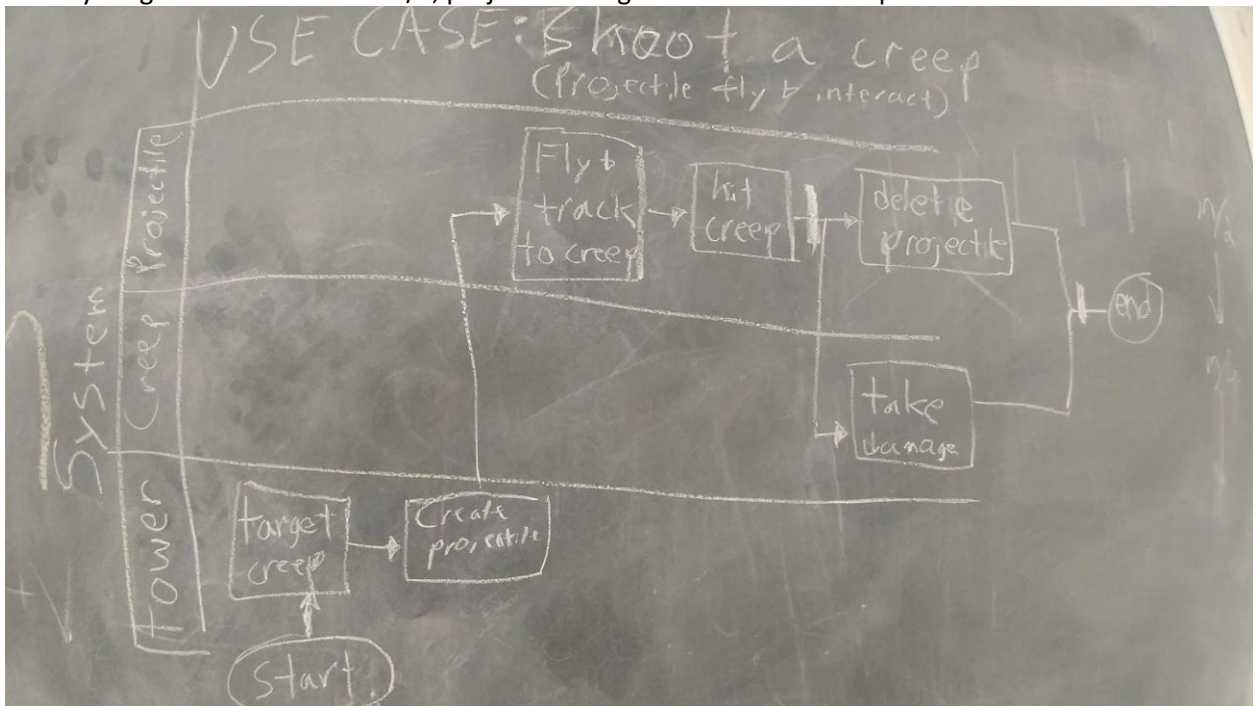 USE CASE: Shoot a creep
(Projectile fly & interact)
System
Projectile
Creep
Tower
Fly &
track
to creep
hit
creep
delete
projectile
take
damage
end
target
creep
Create
projectile
Start